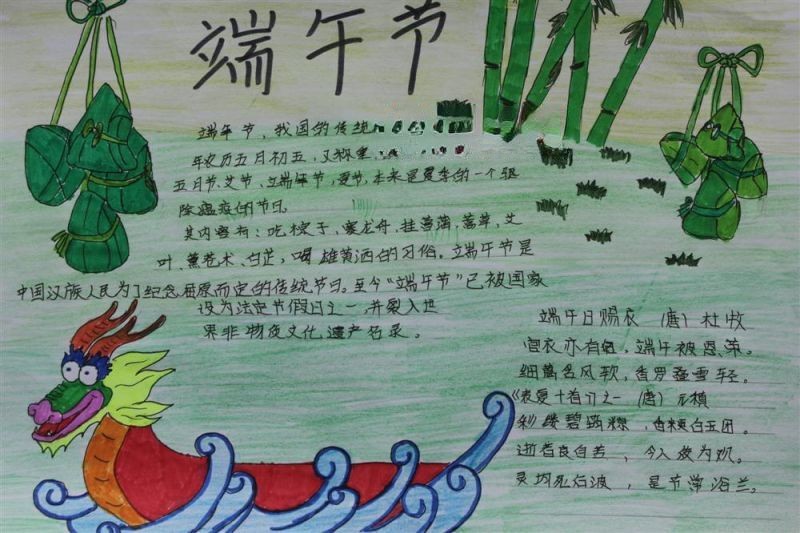 端午节
端午节，我国的传统
年农历五月初五，又称
五月节、艾节、立端午节，夏节，本来是夏季的一个驱
除瘟疫的节日
其内容有：吃棕子、赛龙舟、挂菖蒲、蒿草、艾
叶、薰苍术、白芷，喝雄黄洒的习俗。立端午节是
中国汉族人民为了纪念屈原而定的传统节日。至今“端午节”已被国家
设为法定节假日之一，并裂入世
界非物质文化遗产名录。
端午日赐衣（唐）杜牧
宫衣亦有，端午被恩荣。
细葛含风软，香罗叠雪轻。
《表夏十首》之一（唐）元稹
彩缕碧筠粽，香粳白玉团。
逝者良自苦，今人反为欢。
灵均死后波，是节常浴兰。